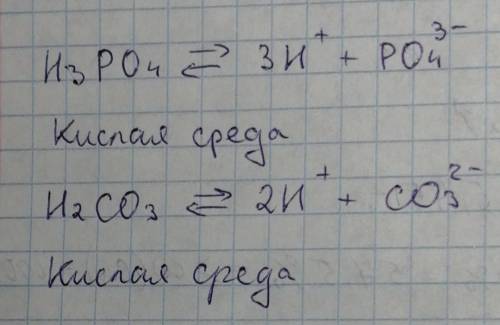 H₃PO₄ ⇄ 3H⁺ + PO₄³⁻
Кислая среда
H₂CO₃ ⇄ 2H⁺ + CO₃²⁻
Кислая среда